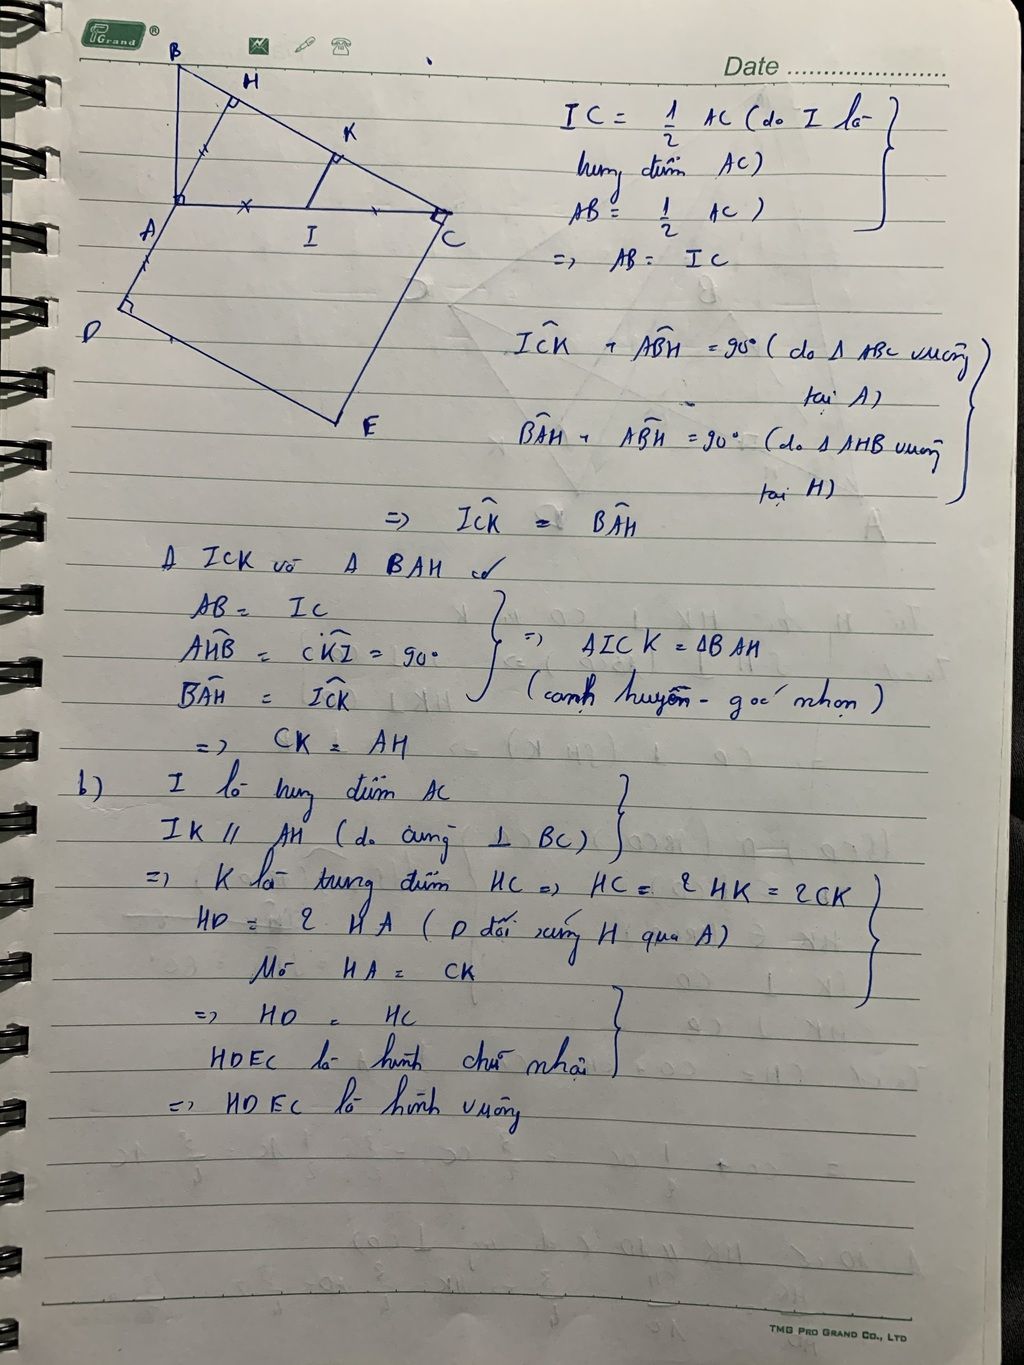 PGrand ®
Date
B
H
K
A
I
C
D
E
IC = 1/2 AC (do I là
trung điểm AC)
AB = 1/2 AC )
=> AB = IC
ICK + ABH = 90° ( do Δ ABC vuông
tại A)
BAH + ABH = 90° (do Δ AHB vuông
tại H)
=> ICK = BAH
Δ ICK và Δ BAH có
AB = IC
AHB = CKI = 90°
BAH = ICK
=> ΔICK = ΔBAH
(cạnh huyền - góc nhọn )
=> CK = AH
b) I là trung điểm AC
IK // AH ( do cùng ⊥ BC)
=> K là trung điểm HC => HC = 2 HK = 2CK
HD = 2 HA ( D đối xứng H qua A)
Mà HA = CK
=> HD = HC
HDEC là hình chữ nhật
=> HDEC là hình vuông
TMG PRO GRAND CO., LTD